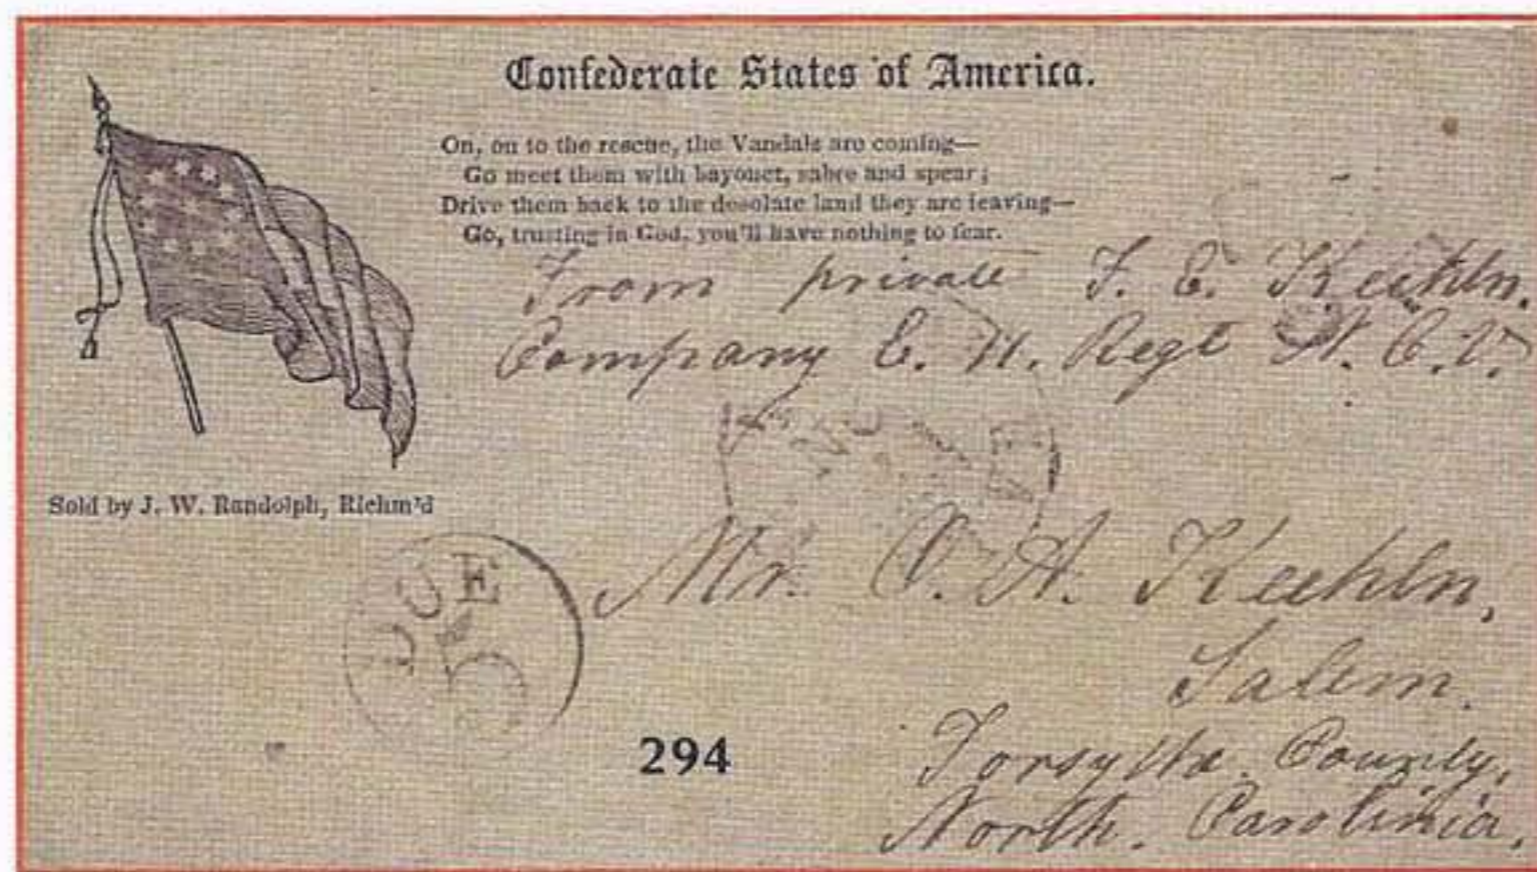 Confederate States of America.
On, on to the rescue, the Vandals are coming—
Go meet them with bayonet, sabre and spear;
Drive them back to the desolate land they are leaving—
Go, trusting in God, you'll have nothing to fear.
From private F. E. Keehln.
Company E. 11. Regt N. C. V.
Sold by J. W. Randolph, Richm'd
DUE
5
Mr. C. A. Keehln,
Salem.
Forsythe. County,
North. Carolinia.
294